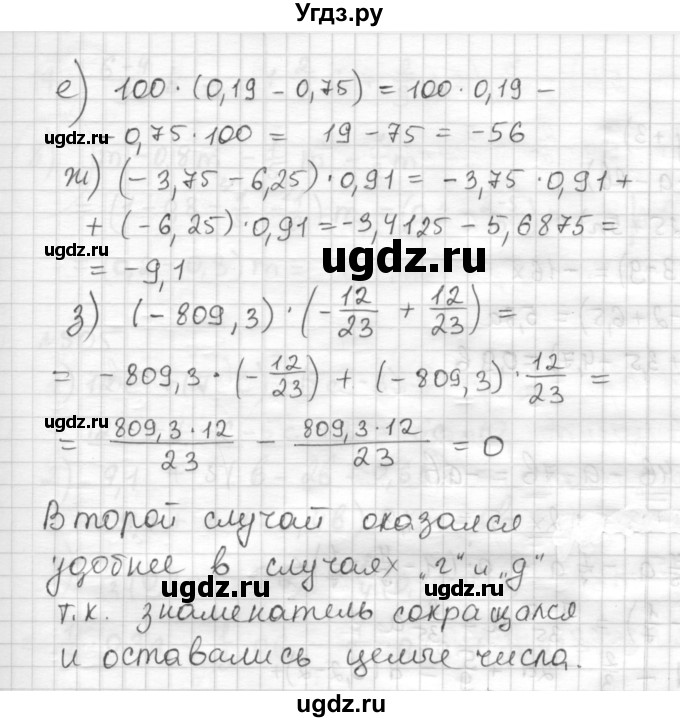 Угдз.ру
е) 100 · (0,19 - 0,75) = 100 · 0,19 -
ugdz.ru - 0,75 · 100 = 19 - 75 = -56 ugdz.ru
ж) (-3,75 - 6,25) · 0,91 = -3,75 · 0,91 +
+ (-6,25) · 0,91 = -3,4125 - 5,6875 =
= -9,1 ugdz.ru
з) (-809,3) · (-12/23 + 12/23) =
= -809,3 · (-12/23) + (-809,3) · 12/23 =
ugdz.ru ugdz.ru
= 809,3 · 12/23 - 809,3 · 12/23 = 0
Второй случай оказался
удобнее в случаях „г“ и „д“
ugdz.ru
т.к. знаменатель сокращался ugdz.ru
и оставались целые числа.
ugdz.ru